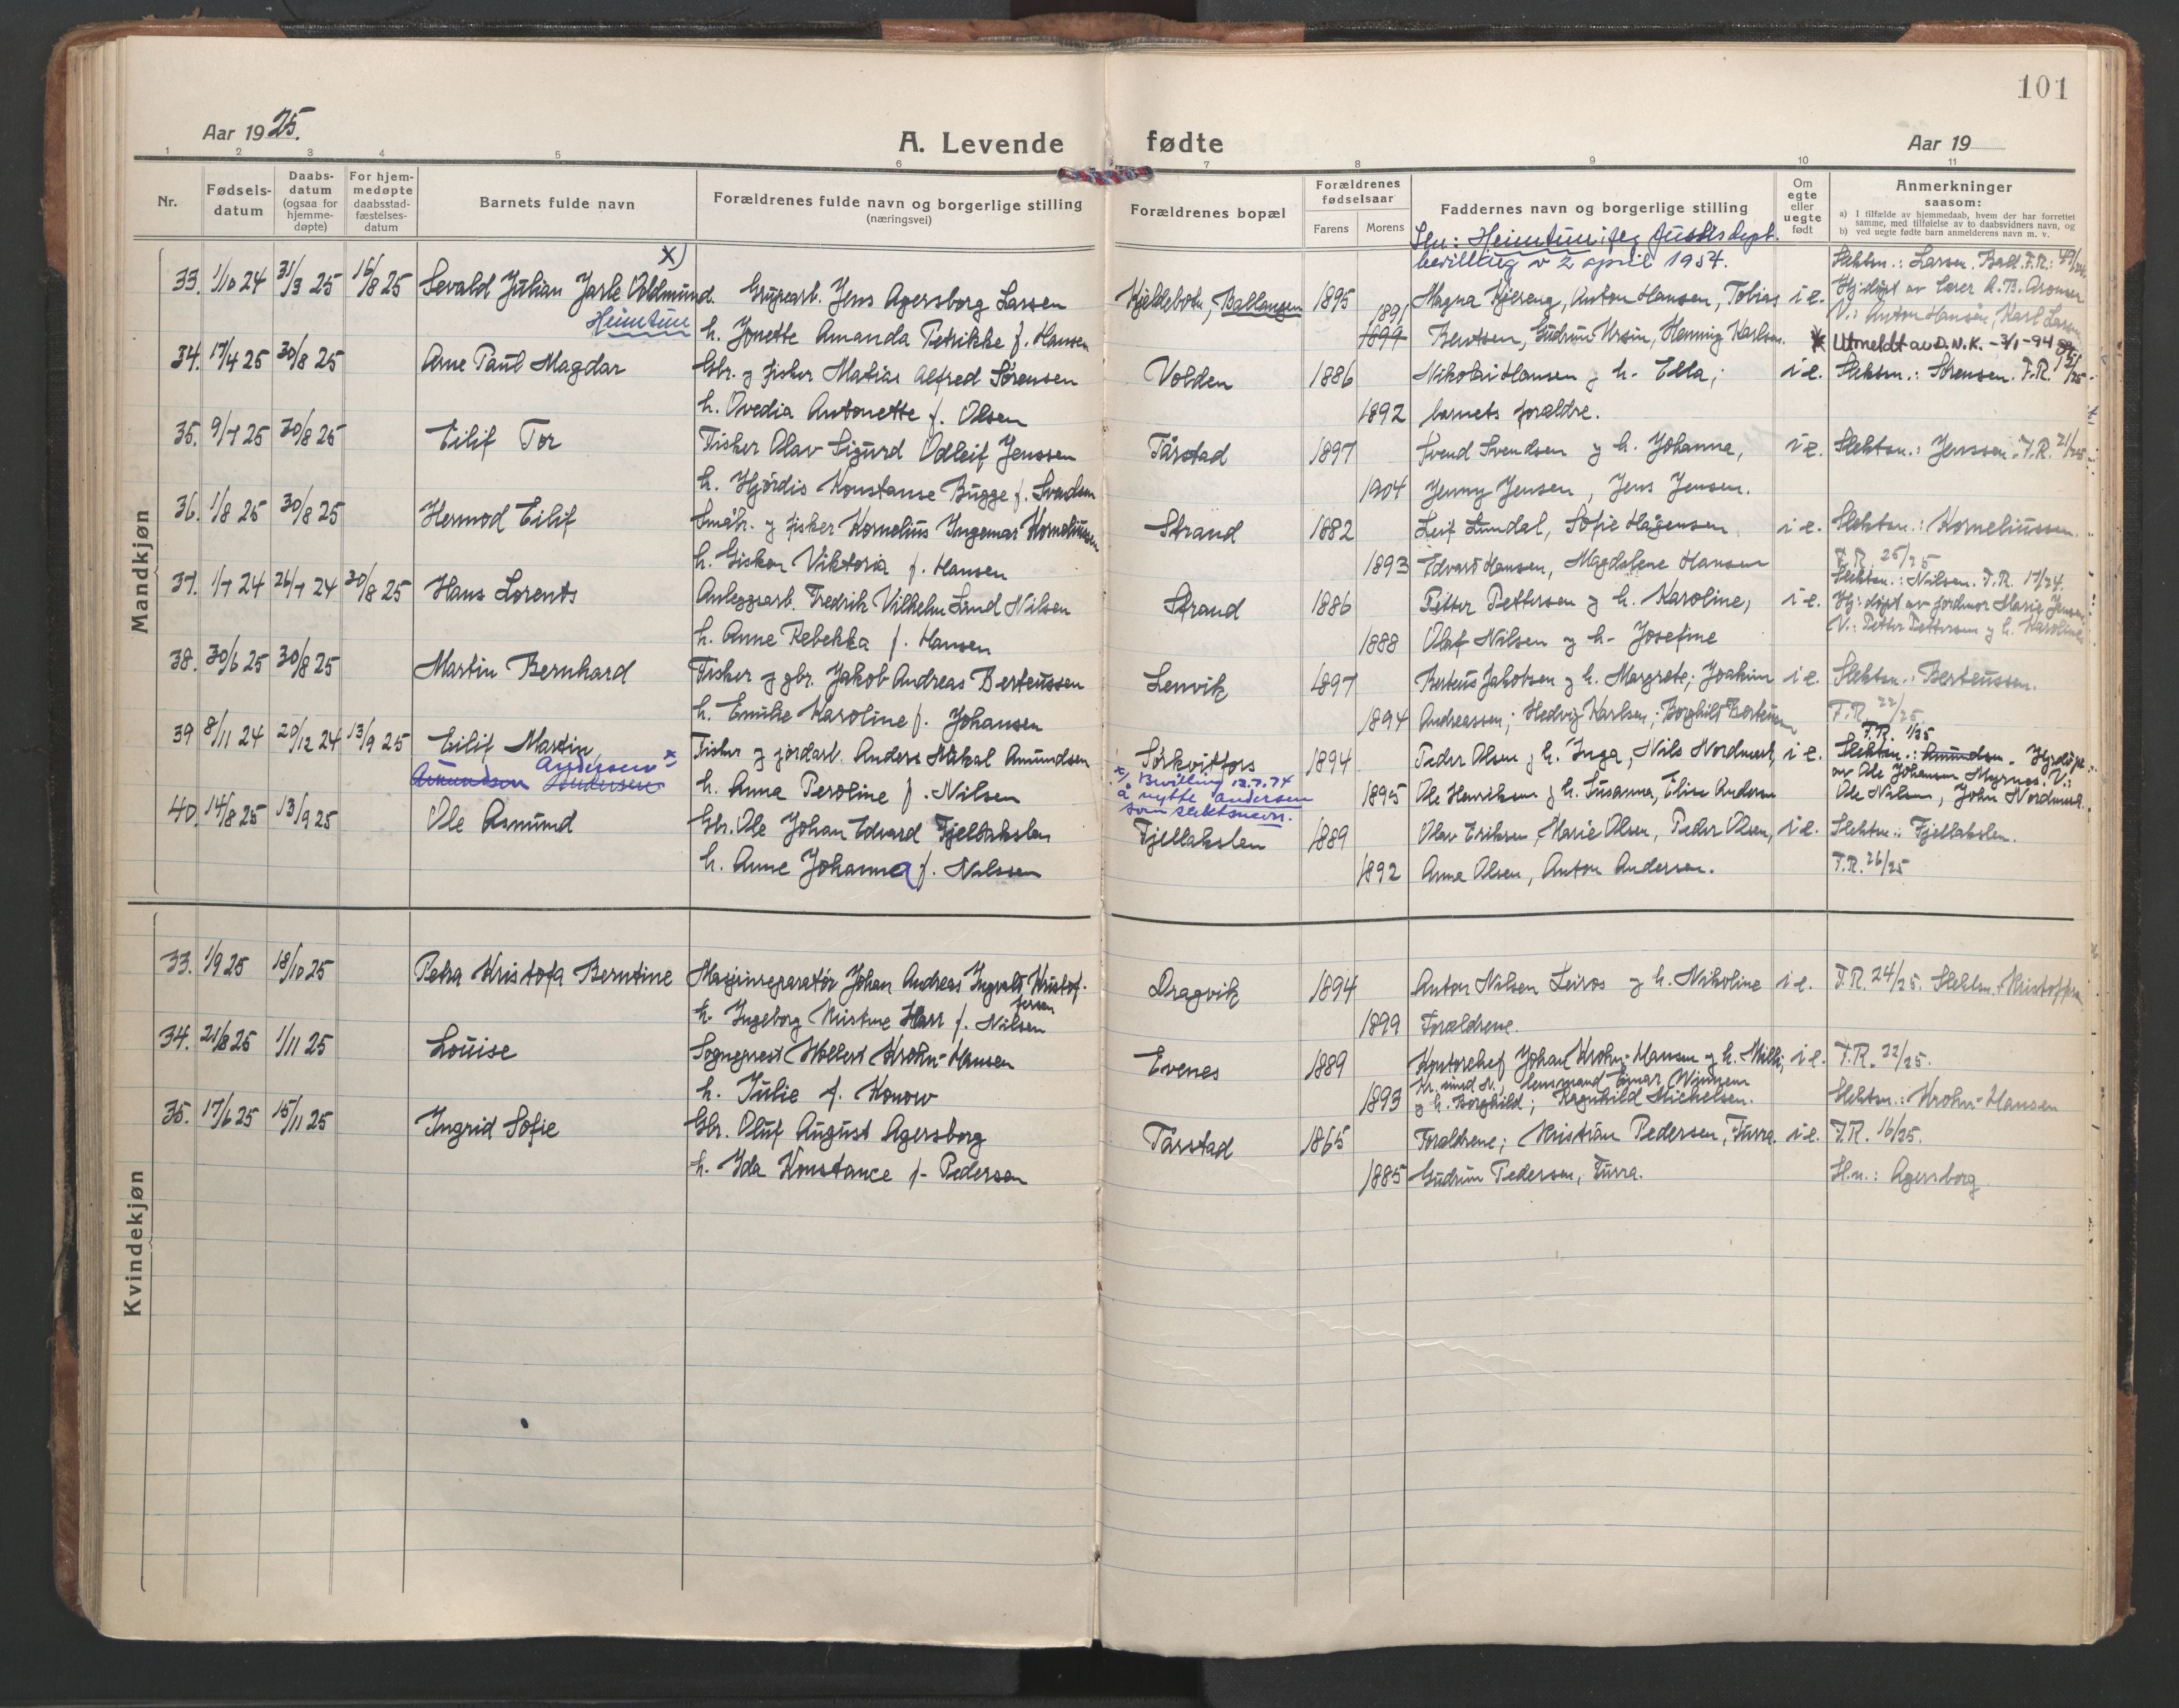 101
Aar 1925.
A. Levende fødte
Aar 19
1 2 3 4 5 6 7 8 9 10 11
Nr.
Fødsels-
datum
Daabs-
datum
(ogsaa for
hjemme-
døpte)
For hjem-
medøpte
daabsstad-
fæstelses-
datum
Barnets fulde navn
Forældrenes fulde navn og borgerlige stilling
(næringsvei)
Forældrenes bopæl
Forældrenes
fødselsaar
Farens Morens
Faddernes navn og borgerlige stilling
Om
egte
eller
uegte
født
Anmerkninger
saasom:
a) I tilfælde av hjemmedaab, hvem der har forrettet
samme, med tilføielse av to daabsvidners navn, og
b) ved uegte fødte barn anmelderens navn m. v.
Mandkjøn
Sln: Heimtun ifeg Justisdept.
bevilling av 2 april 1954.
x)
33. 1/10 24 31/3 25 16/8 25 Sevald Julian Jarle Voldmund. Grubearb. Jens Agersborg Larsen Kjeldebotn, Ballangen 1895 Magna Kjæreng, Anton Hansen, Tobias i e. Slektsn.: Larsen. Ball. F.R.: 49/24.
Heimtun
Hj.døpt av lærer A. B. Aronsen
V.: Anton Hansen, Karl Larsen
h. Jonette Amanda Petrikke f. Hansen 1891 1894 Berntsen, Gudrun Ursin, Henning Karlsen. * Utmeldt av D.N.K. - 3/1 - 94
34. 17/4 25 30/8 25 Arne Paul Magdar Gbr. og fisker Matias Alfred Sørensen Volden 1886 Nikolai Hansen og h. Ella; i e. Slektsn.: Sørensen. F.R. 12/25.
h. Ovedia Antonette f. Olsen 1892 barnets forældre.
35. 9/7 25 30/8 25 Eilif Tor Fisker Olav Sigurd Odleif Jenssen Tårstad 1897 Svend Svendsen og h. Johanna, i e. Slektsn.: Jenssen. F.R. 21/25
h. Hjørdis Konstanse Bugge f. Svendsen 1904 Jenny Jensen, Jens Jensen.
36. 1/8 25 30/8 25 Hermod Eilif Småbr. og fisker Kornelius Ingemar Korneliussen Strand 1882 Leif Lundal, Sofie Hågensen i e. Slektsn.: Korneliussen.
h. Giskon Viktoria f. Hansen 1893 Edvard Hansen, Magdalene Hansen F.R. 25/25
37. 1/7 24 26/7 24 30/8 25 Hans Lorents Anleggsarb. Fredrik Vilhelm Lind Nilsen Strand 1886 Petter Pettersen og h. Karoline, i e. Slektsn.: Nilsen. F.R. 17/24.
Hj.døpt av jordmor Marie Jensen.
h. Anne Rebekka f. Hansen 1888 Olaf Nilsen og h. Josefine V.: Petter Pettersen og h. Karoline
38. 30/6 25 30/8 25 Martin Bernhard Fisker og gbr. Jakob Andreas Berteussen Lenvik 1897 Berteus Jakobsen og h. Margrete; Joakim i e. Slektsn.: Berteussen.
h. Emilie Karoline f. Johansen 1894 Andreassen; Hedvig Karlsen; Borghild Berteussen F.R. 22/25.
39 8/11 24 20/12 24 13/9 25 Eilif Martin Fisker og jordarb. Anders Mikal Amundsen Sørkvitfors 1894 Peder Olsen og h. Inga, Nils Nordmark, i e. F.R. 1/25
Slektsn.: Amundsen. Hj.døpt
Amundsen Andersen Andersen x
h. Anna Peroline f. Nilsen 1895 Ole Henriksen og h. Susanna, Elise Andersen av Ole Johansen Myrnes. V.:
Ole Nilsen, John Nordmark.
x) Bevilling 12.7.74
å nytte Andersen
som slektsnavn.
40. 14/8 25 13/9 25 Ole Asmund Gbr. Ole Johan Edvard Fjellakslen Fjellakslen 1889 Olav Eriksen, Marie Olsen, Peder Olsen, i e. Slektsn.: Fjellakslen.
h. Anne Johanna f. Nilssen 1892 Anna Olsen, Anton Andersen. F.R. 26/25
Kvindekjøn
33. 1/9 25 18/10 25 Petra Kristofa Berntine Maskinreparatør Johan Andreas Ingvald Kristof-
fersen Dragvik 1894 Anton Nilsen Leiros og h. Nikoline i e. F.R. 24/25. Slektsn.: Kristoffersen
h. Ingeborg Kristine Harr f. Nilsen 1899 Forældrene.
34. 21/8 25 1/11 25 Louise Sogneprest Wollert Krohn-Hansen Evenes 1889 Kontorchef Johan Krohn-Hansen og h. Milli; i e. F.R. 22/25.
h. Julie f. Konow 1893 Kr.sund N., lensmand Einar Winnem
og h. Borghild; Ragnhild Michelsen. Slektsn.: Krohn-Hansen
35. 17/6 25 15/11 25 Ingrid Sofie Gbr. Oluf August Agersborg Tårstad 1865 Forældrene; Kristian Pedersen, Furra. i e. F.R. 16/25.
h. Ida Konstance f. Pedersen 1885 Gudrun Pedersen, Furra. Sl.n.: Agersborg